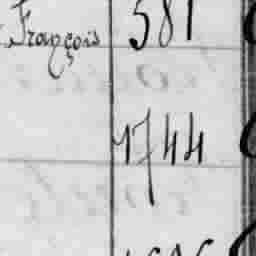 François 581
1744